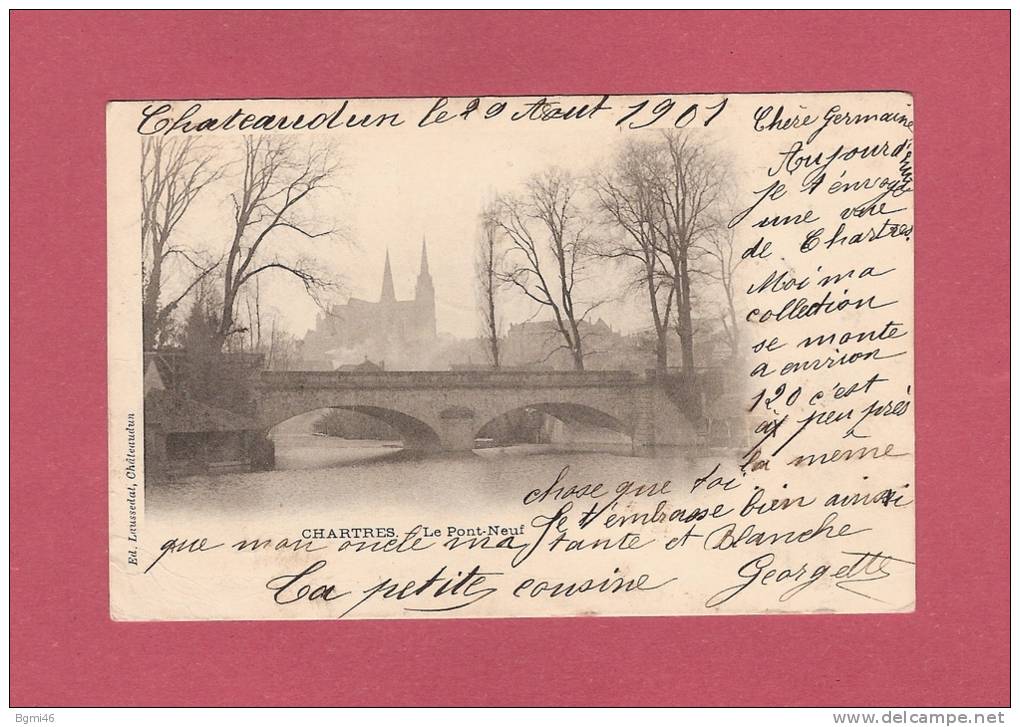 Chateaudun le 29 Aout 1901
Chère Germaine
Aujourd'hui
je t'envoye
une vue
de Chartres.
Moi ma
collection
se monte
a environ
120 c'est
a peu près
la même
chose que toi.
Je t'embrasse bien ainsi
que mon oncle ma tante et Blanche
Ta petite cousine Georgette
CHARTRES. Le Pont-Neuf
Ed. Laussedat, Châteaudun
Bgmi46
www.delcampe.net